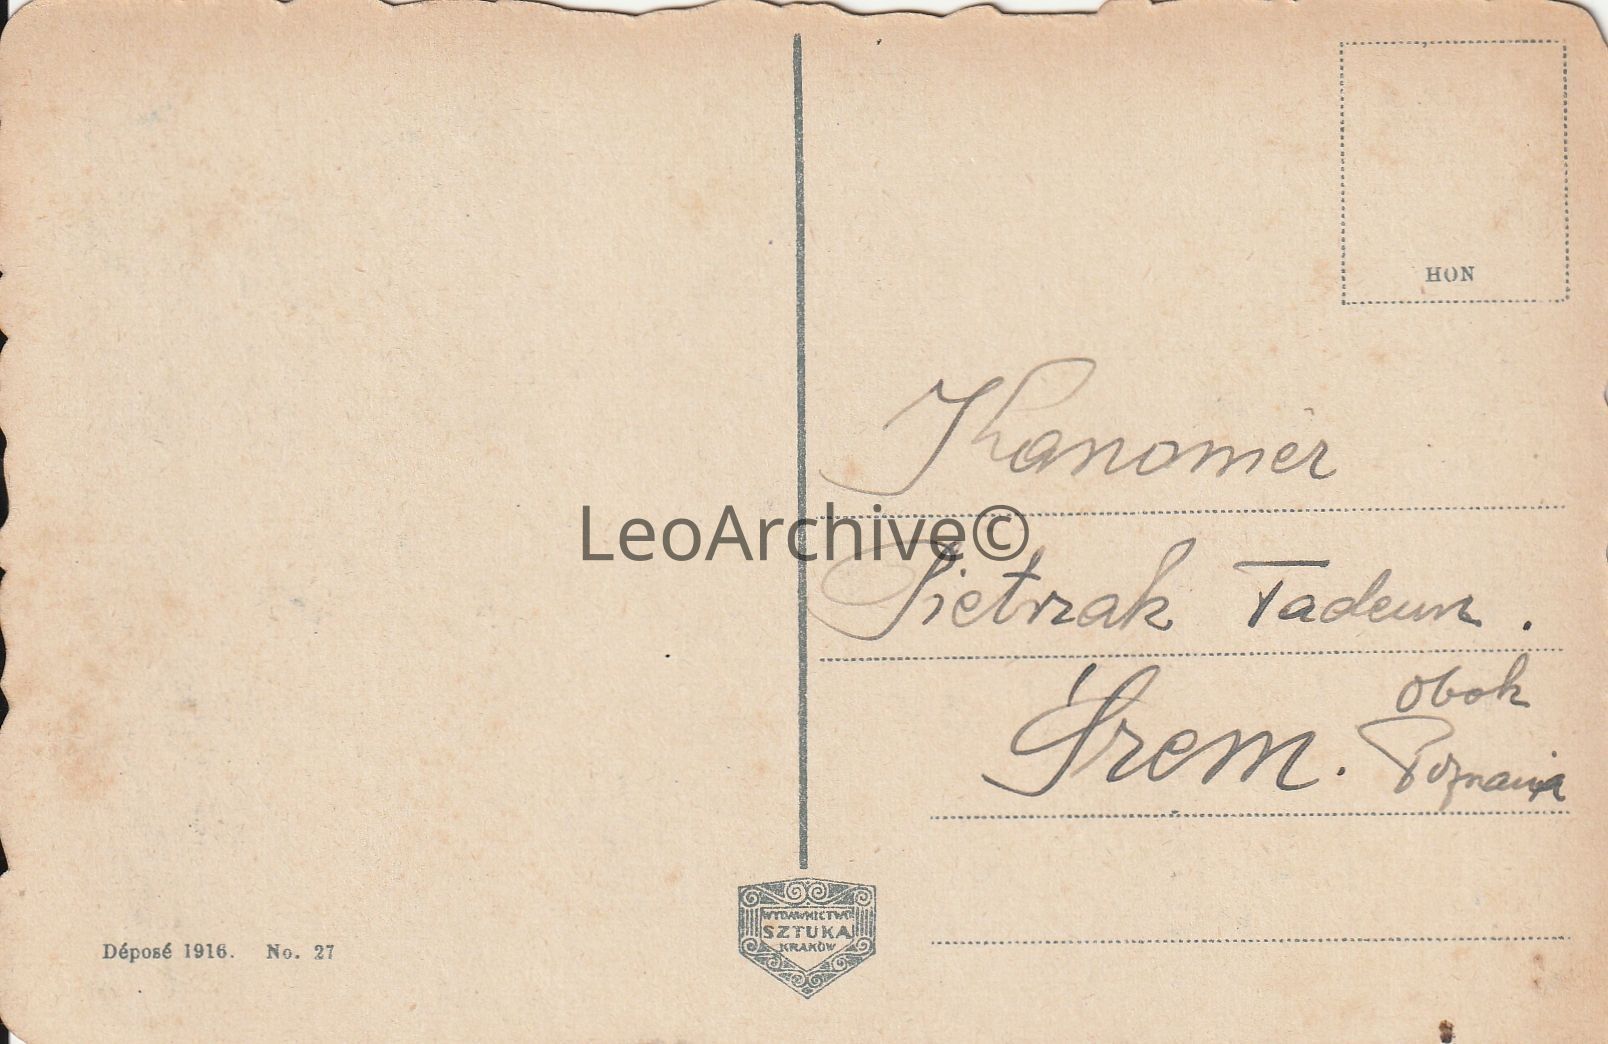 HON
Kanonier
LeoArchive©
Pietrzak Tadeusz.
Śrem. obok
Poznania
WYDAWNICTWO
SZTUKA
KRAKÓW
Déposé 1916. No. 27